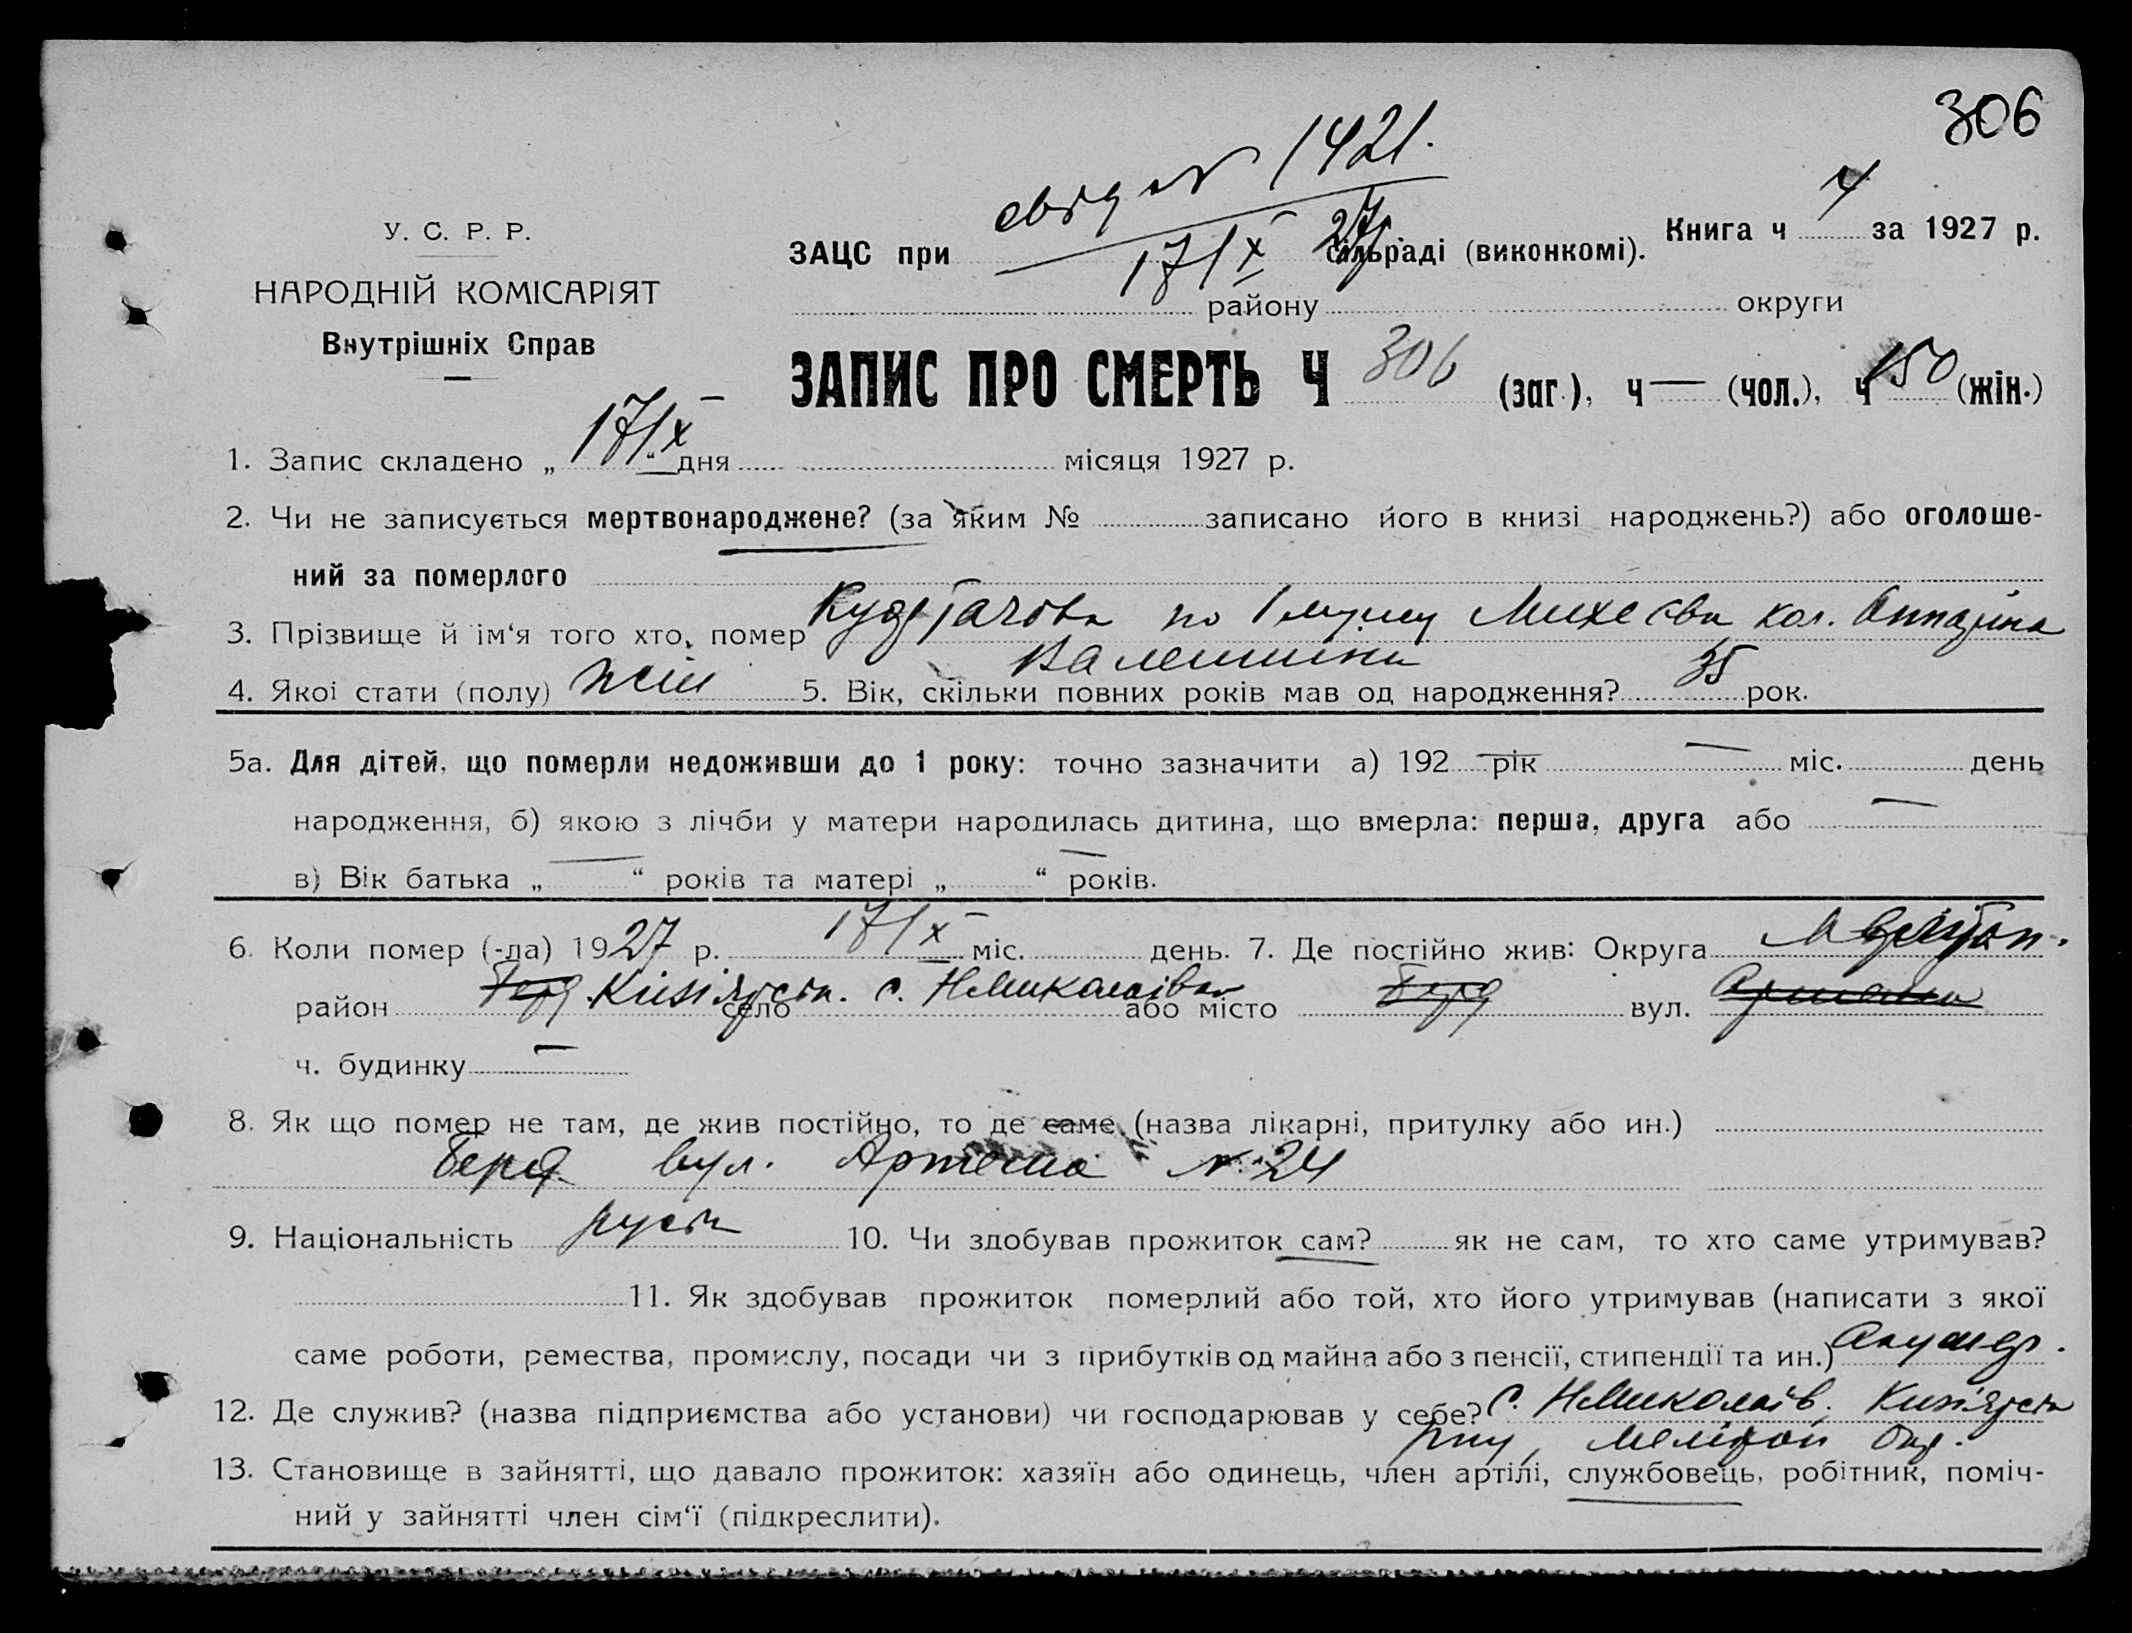 306
свід № 1421.
17/IX 27р.
У. С. Р. Р.
НАРОДНІЙ КОМІСАРІЯТ
Внутрішніх Справ
ЗАЦС при сільраді (виконкомі). Книга ч 4 за 1927 р.
району округи
ЗАПИС ПРО СМЕРТЬ Ч 306 (заг.), ч — (чол.), ч 150 (жін.)
1. Запис складено „ 17/IX “ дня місяця 1927 р.
2. Чи не записується мертвонароджене? (за яким № записано його в книзі народжень?) або оголоше-
ний за померлого
3. Прізвище й ім‘я того хто, помер по мужу Михеєва
4. Якої стати (полу) жін 5. Вік, скільки повних років мав од народження? 35 рок.
5а. Для дітей, що померли недоживши до 1 року: точно зазначити а) 192 рік — міс. день
народження, б) якою з лічби у матери народилась дитина, що вмерла: перша, друга або —
в) Вік батька „ — “ років та матері „ — “ років.
6. Коли помер (-ла) 1927 р. 17/IX міс. день. 7. Де постійно жив: Округа Мелітоп.
район село с. НМиколаївка або місто Берд вул.
ч. будинку —
8. Як що помер не там, де жив постійно, то де саме (назва лікарні, притулку або ин.)
Берд. вул. Артема № 24
9. Національність руськ 10. Чи здобував прожиток сам? як не сам, то хто саме утримував?
11. Як здобував прожиток померлий або той, хто його утримував (написати з якої
саме роботи, ремества, промислу, посади чи з прибутків од майна або з пенсії, стипендії та ин.) Акушер.
12. Де служив? (назва підприємства або установи) чи господарював у себе? с. НМиколаїв.
рну, Мелітоп Окр.
13. Становище в зайнятті, що давало прожиток: хазяїн або одинець, член артілі, службовець, робітник, поміч-
ний у зайнятті член сім‘ї (підкреслити).